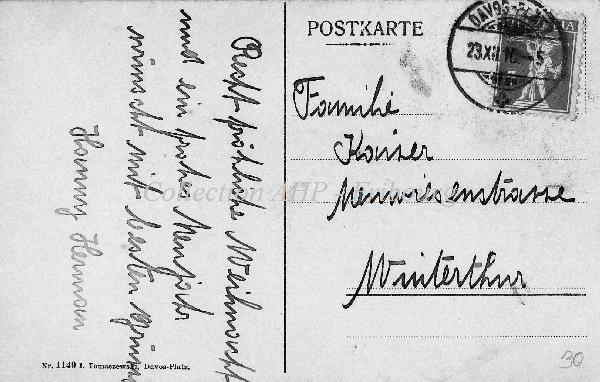 POSTKARTE
DAVOS-PLATZ
23.XII.16.-5
Familie
Kaiser
Winterthur
Recht fröhliche Weihnacht
und ein frohes Neujahr
wünscht mit besten Grüssen
Hermann
Nr. 1149 I. Tomaszewski, Davos-Platz.
Collection AHP
30